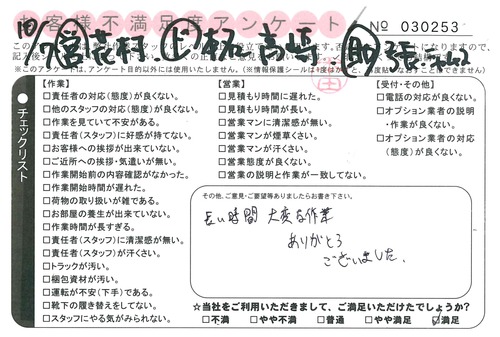 お客様不満足度アンケート
№ 030253
10/7 営 花村
高崎
チェックリスト
【作業】
□責任者の対応(態度)が良くない。
□他のスタッフの対応(態度)が良くない。
□作業を見ていて不安がある。
□責任者(スタッフ)に好感が持てない。
□お客様への挨拶が出来ていない。
□ご近所への挨拶・気遣いが無い。
□作業開始前の内容確認がなかった。
□作業開始時間が遅れた。
□荷物の取り扱いが雑である。
□お部屋の養生が出来ていない。
□作業時間が長すぎる。
□責任者(スタッフ)に清潔感が無い。
□責任者(スタッフ)が汗くさい。
□トラックが汚い。
□梱包資材が汚い。
□運転が不安(下手)である。
□靴下の履き替えをしてない。
□スタッフにやる気がみられない。
【営業】
□見積もり時間に遅れた。
□見積もり時間が長い。
□営業マンに清潔感が無い。
□営業マンが煙草くさい。
□営業マンが汗くさい。
□営業態度が良くない。
□営業の説明と作業が一致してない。
【受付・その他】
□電話の対応が良くない。
□オプション業者の説明
・作業が良くない。
□オプション業者の対応
(態度)が良くない。
その他、ご意見・ご要望等ありましたらお書き下さい。
長い時間 大変な作業
ありがとう
ございました。
☆当社をご利用いただきまして、ご満足いただけたでしょうか?
□不満 □やや不満 □普通 □やや満足 ☑満足